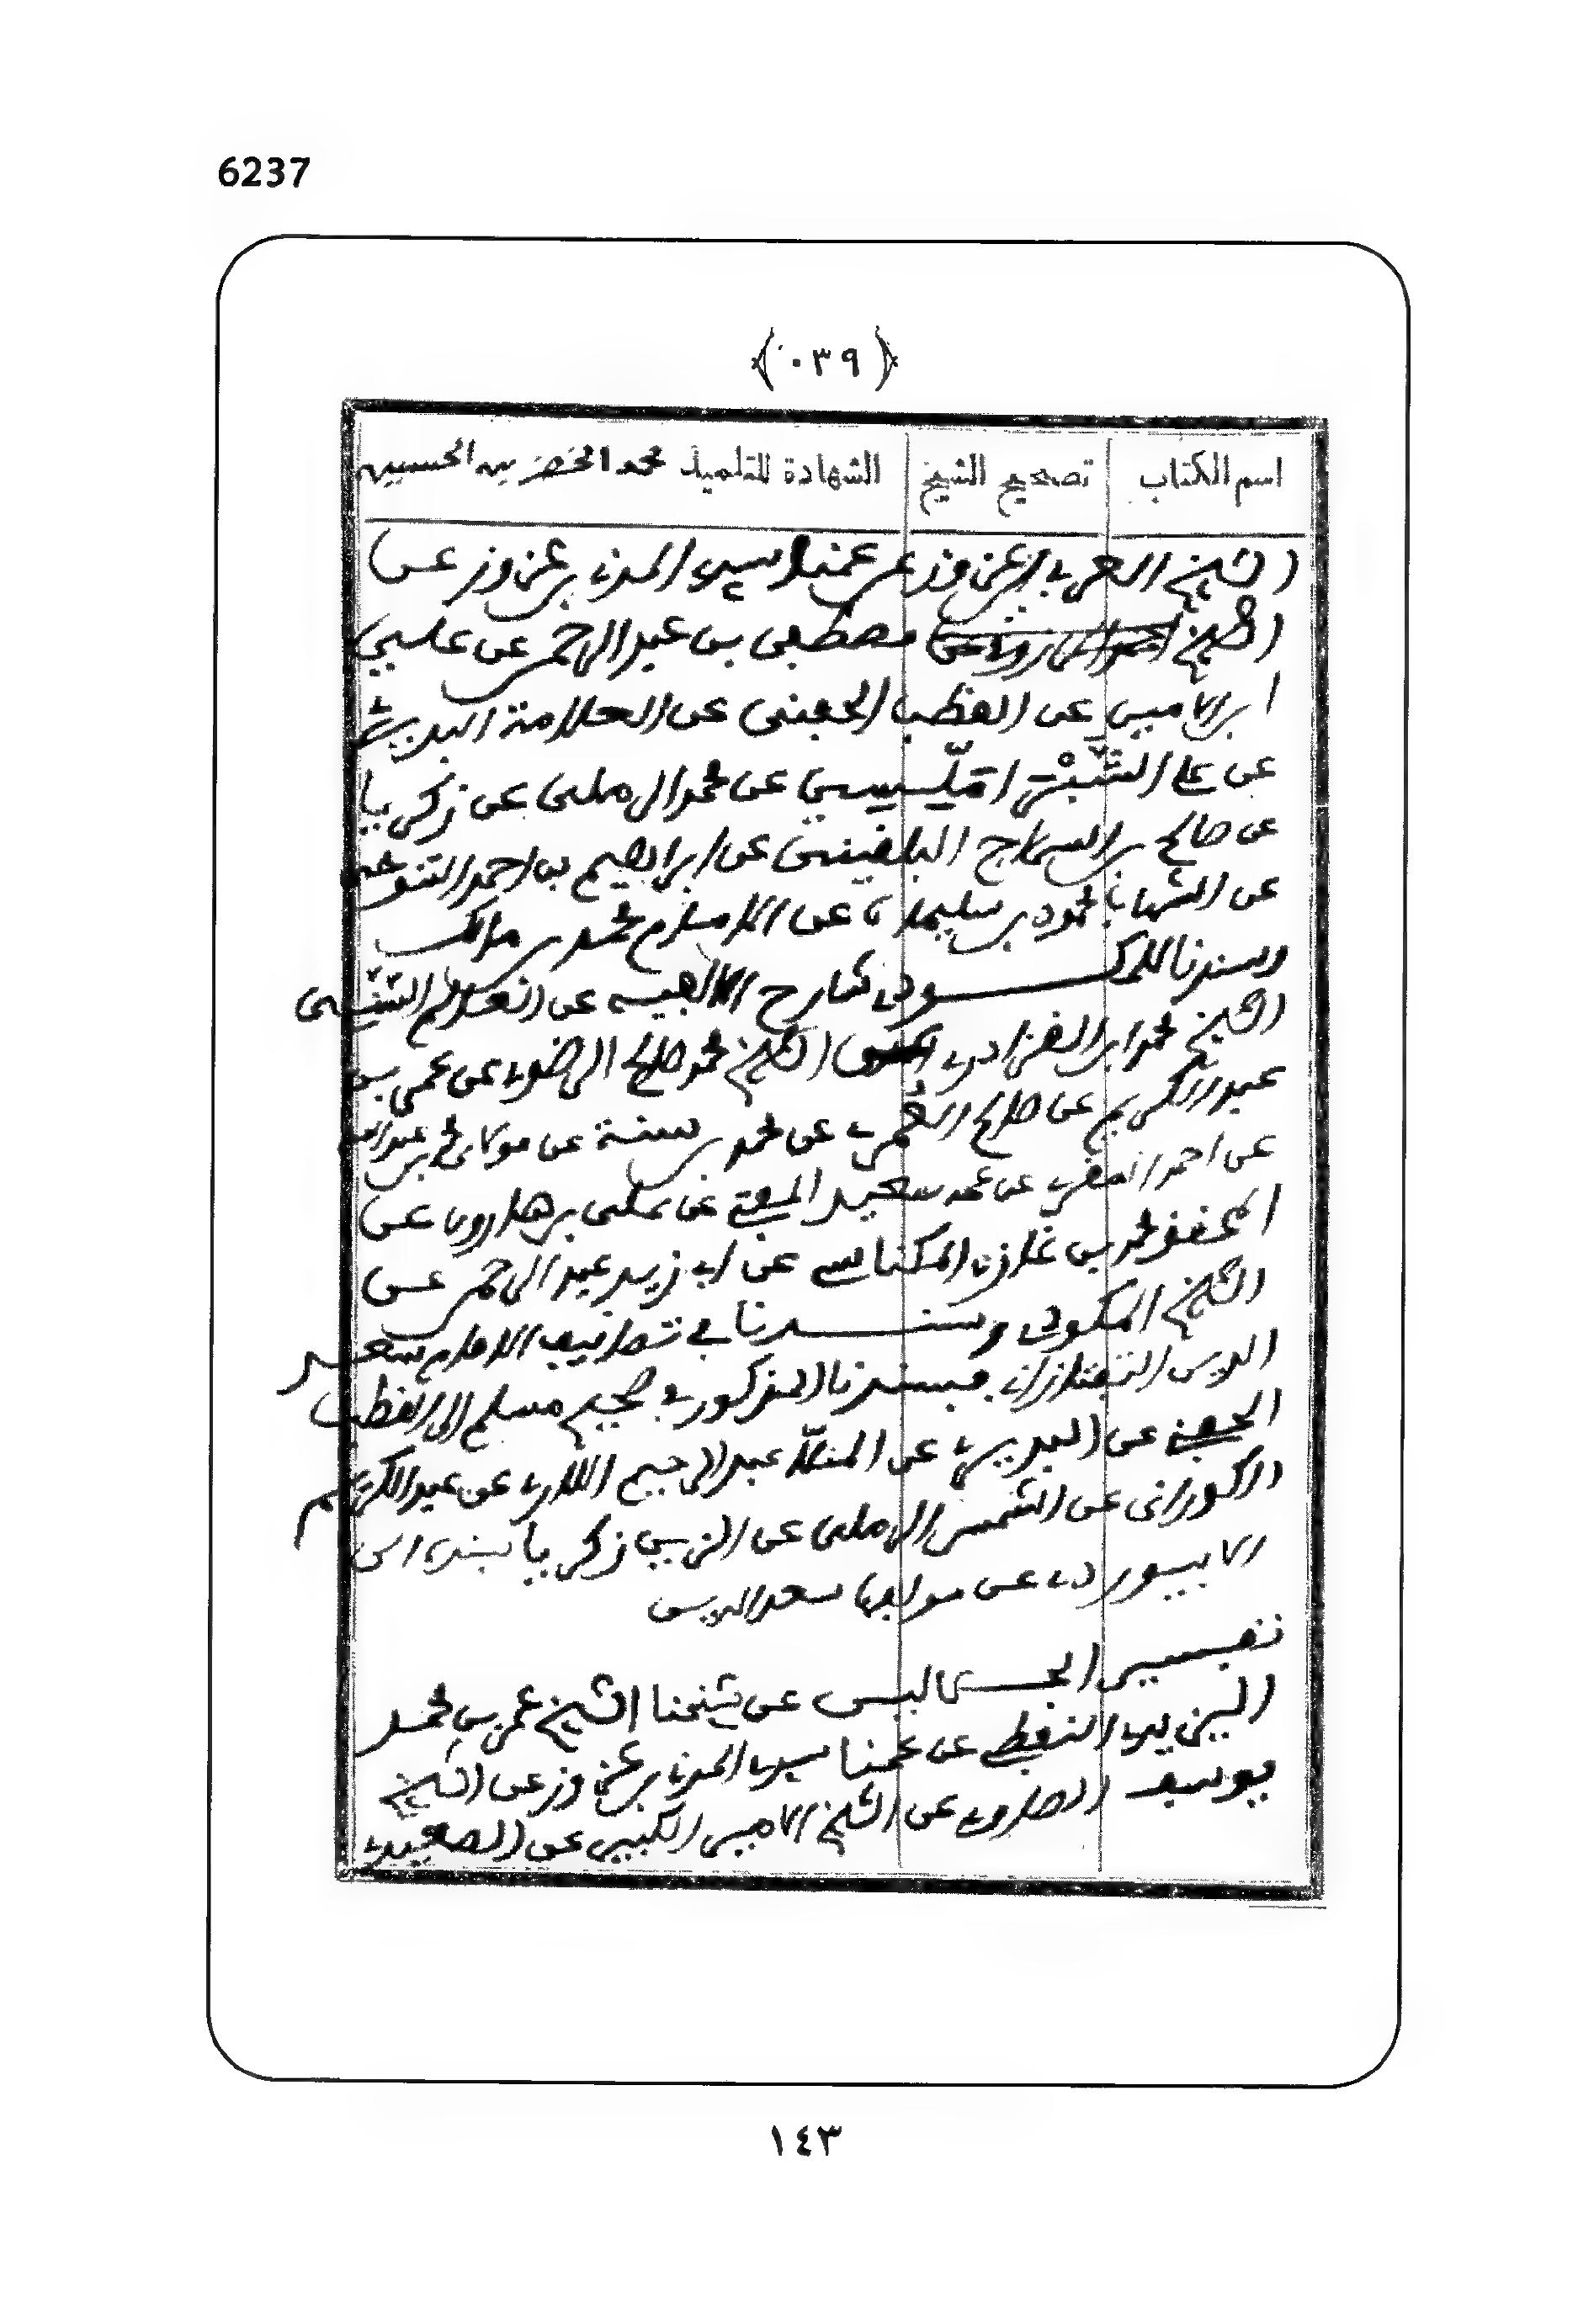 6237
﴿٠٣٩﴾
اسم الكتاب تصحيح الشيخ الشهادة للتلميذ محمد الخضر بن الحسين
الشيخ العربي بن عزوز عن عمنا سيدي المدني بن عزوز عن
الشيخ مصطفى بن عبد الرحمن عن علي
ابن الامين عن القطب الحفني عن العلامة البديري
عن علي الشبراملّسي عن محمد الرملي عن زكريا
عن صالح بن السراج البلقيني عن ابراهيم بن احمد التنوخي
عن الشهاب محمود بن سليمان عن الامام محمد بن مالك
وسندنا للمكودي شارح الالفية عن
الشيخ محمد الشيخ محمد صالح الرضوي عن عمر بن
عبد الكريم عن صالح العمري عن محمد بن سنة عن مولاي محمد بن عبد الله
عن احمد المقري عن عمه سعيد المفتي عن علي بن هارون عن
المحقق محمد بن غازي المكناسي عن ابي زيد عبد الرحمن عن
الشيخ المكودي وسندنا في تصانيف الامام سعد
الدين التفتازاني بسندنا المذكور في صحيح مسلم الى القطب
الحفني عن البديري عن المنلّا عبد الرحيم اللاري عن عبد الكريم
الكوراني عن الشمس الرملي عن الزين زكريا بسنده الى
الابيوردي عن مولانا سعد الدين
تفسير الجلالين عن شيخنا الشيخ عمر بن محمد
النفطي عن عمنا سيدي المدني بن عزوز عن الشيخ
يوسف الصاوي عن الشيخ الامير الكبير عن الصعيدي
١٤٣